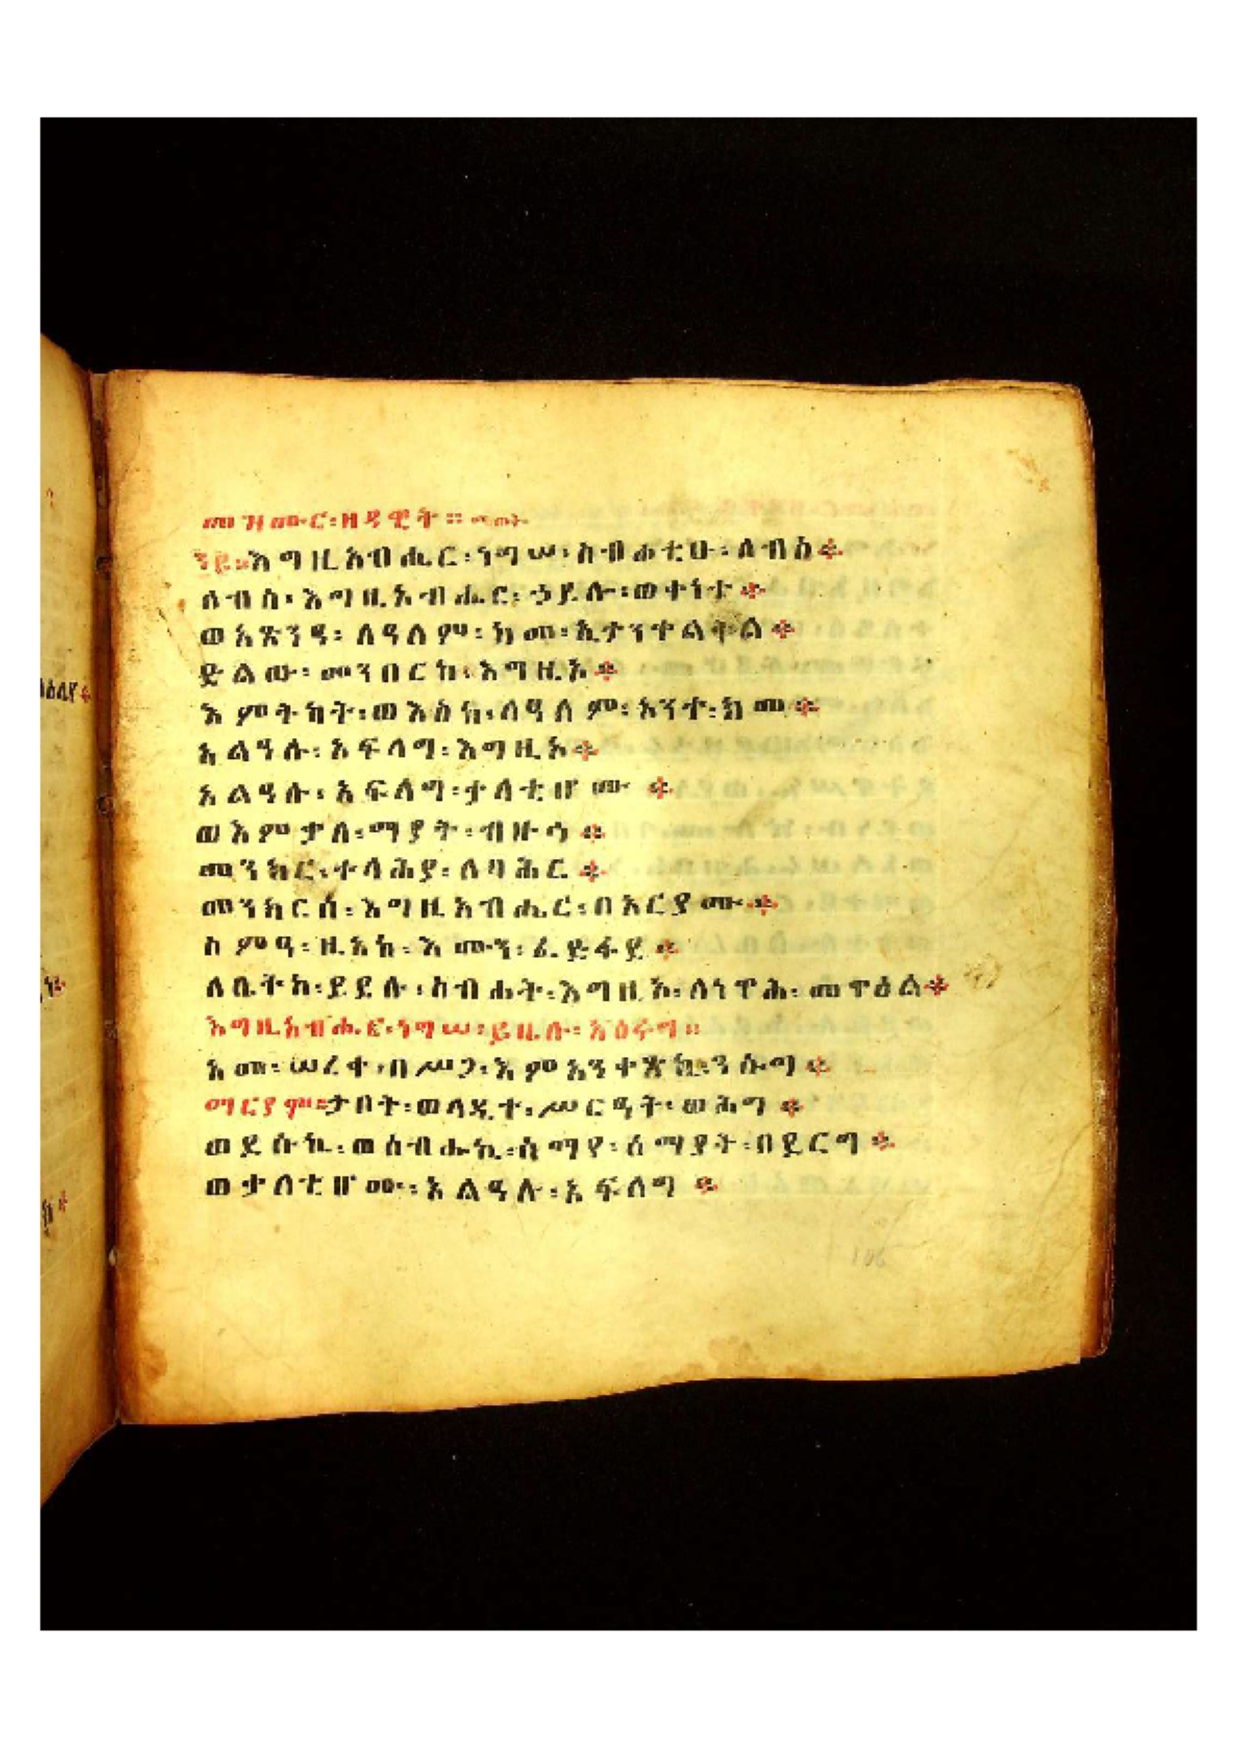 መዝሙር፡ዘዳዊት።
፺፪፡እግዚአብሔር፡ነግሠ፡ስብሐቲሁ፡ለብሰ፨
ለብሰ፡እግዚአብሔር፡ኃይሉ፡ወቀነተ፨
ወአጽንዓ፡ለዓለም፡ከመ፡ኢታንቀልቅል፨
ድልው፡መንበርከ፡እግዚኦ፨
እምትካት፡ወእስከ፡ለዓለም፡አንተ፡ክመ፨
አልዓሉ፡አፍላግ፡እግዚኦ፨
አልዓሉ፡አፍላግ፡ቃላቲሆሙ፨
ወእምቃለ፡ማያት፡ብዙኅ፨
መንክር፡ተላሕያ፡ለባሕር፨
መንክርሰ፡እግዚአብሔር፡በአርያሙ፨
ስምዓ፡ዚአከ፡እሙን፡ፈድፋደ፨
ለቤትከ፡ይደሉ፡ስብሐት፡እግዚኦ፡ለነዋሕ፡መዋዕል፨
እግዚአብሔር፡ነግሠ፡ይቤሉ፡አዕሩግ።
አመ፡ሠረቀ፡በሥጋ፡እም
ማርያም፡ታቦት፡ወላዲተ፡ሥርዓት፡ወሕግ፨
፡ወሰብሑኪ፡ሰማየ፡ሰማያት፡በደርግ፨
ወቃላቲሆሙ፡አልዓሉ፡አፍላግ፨